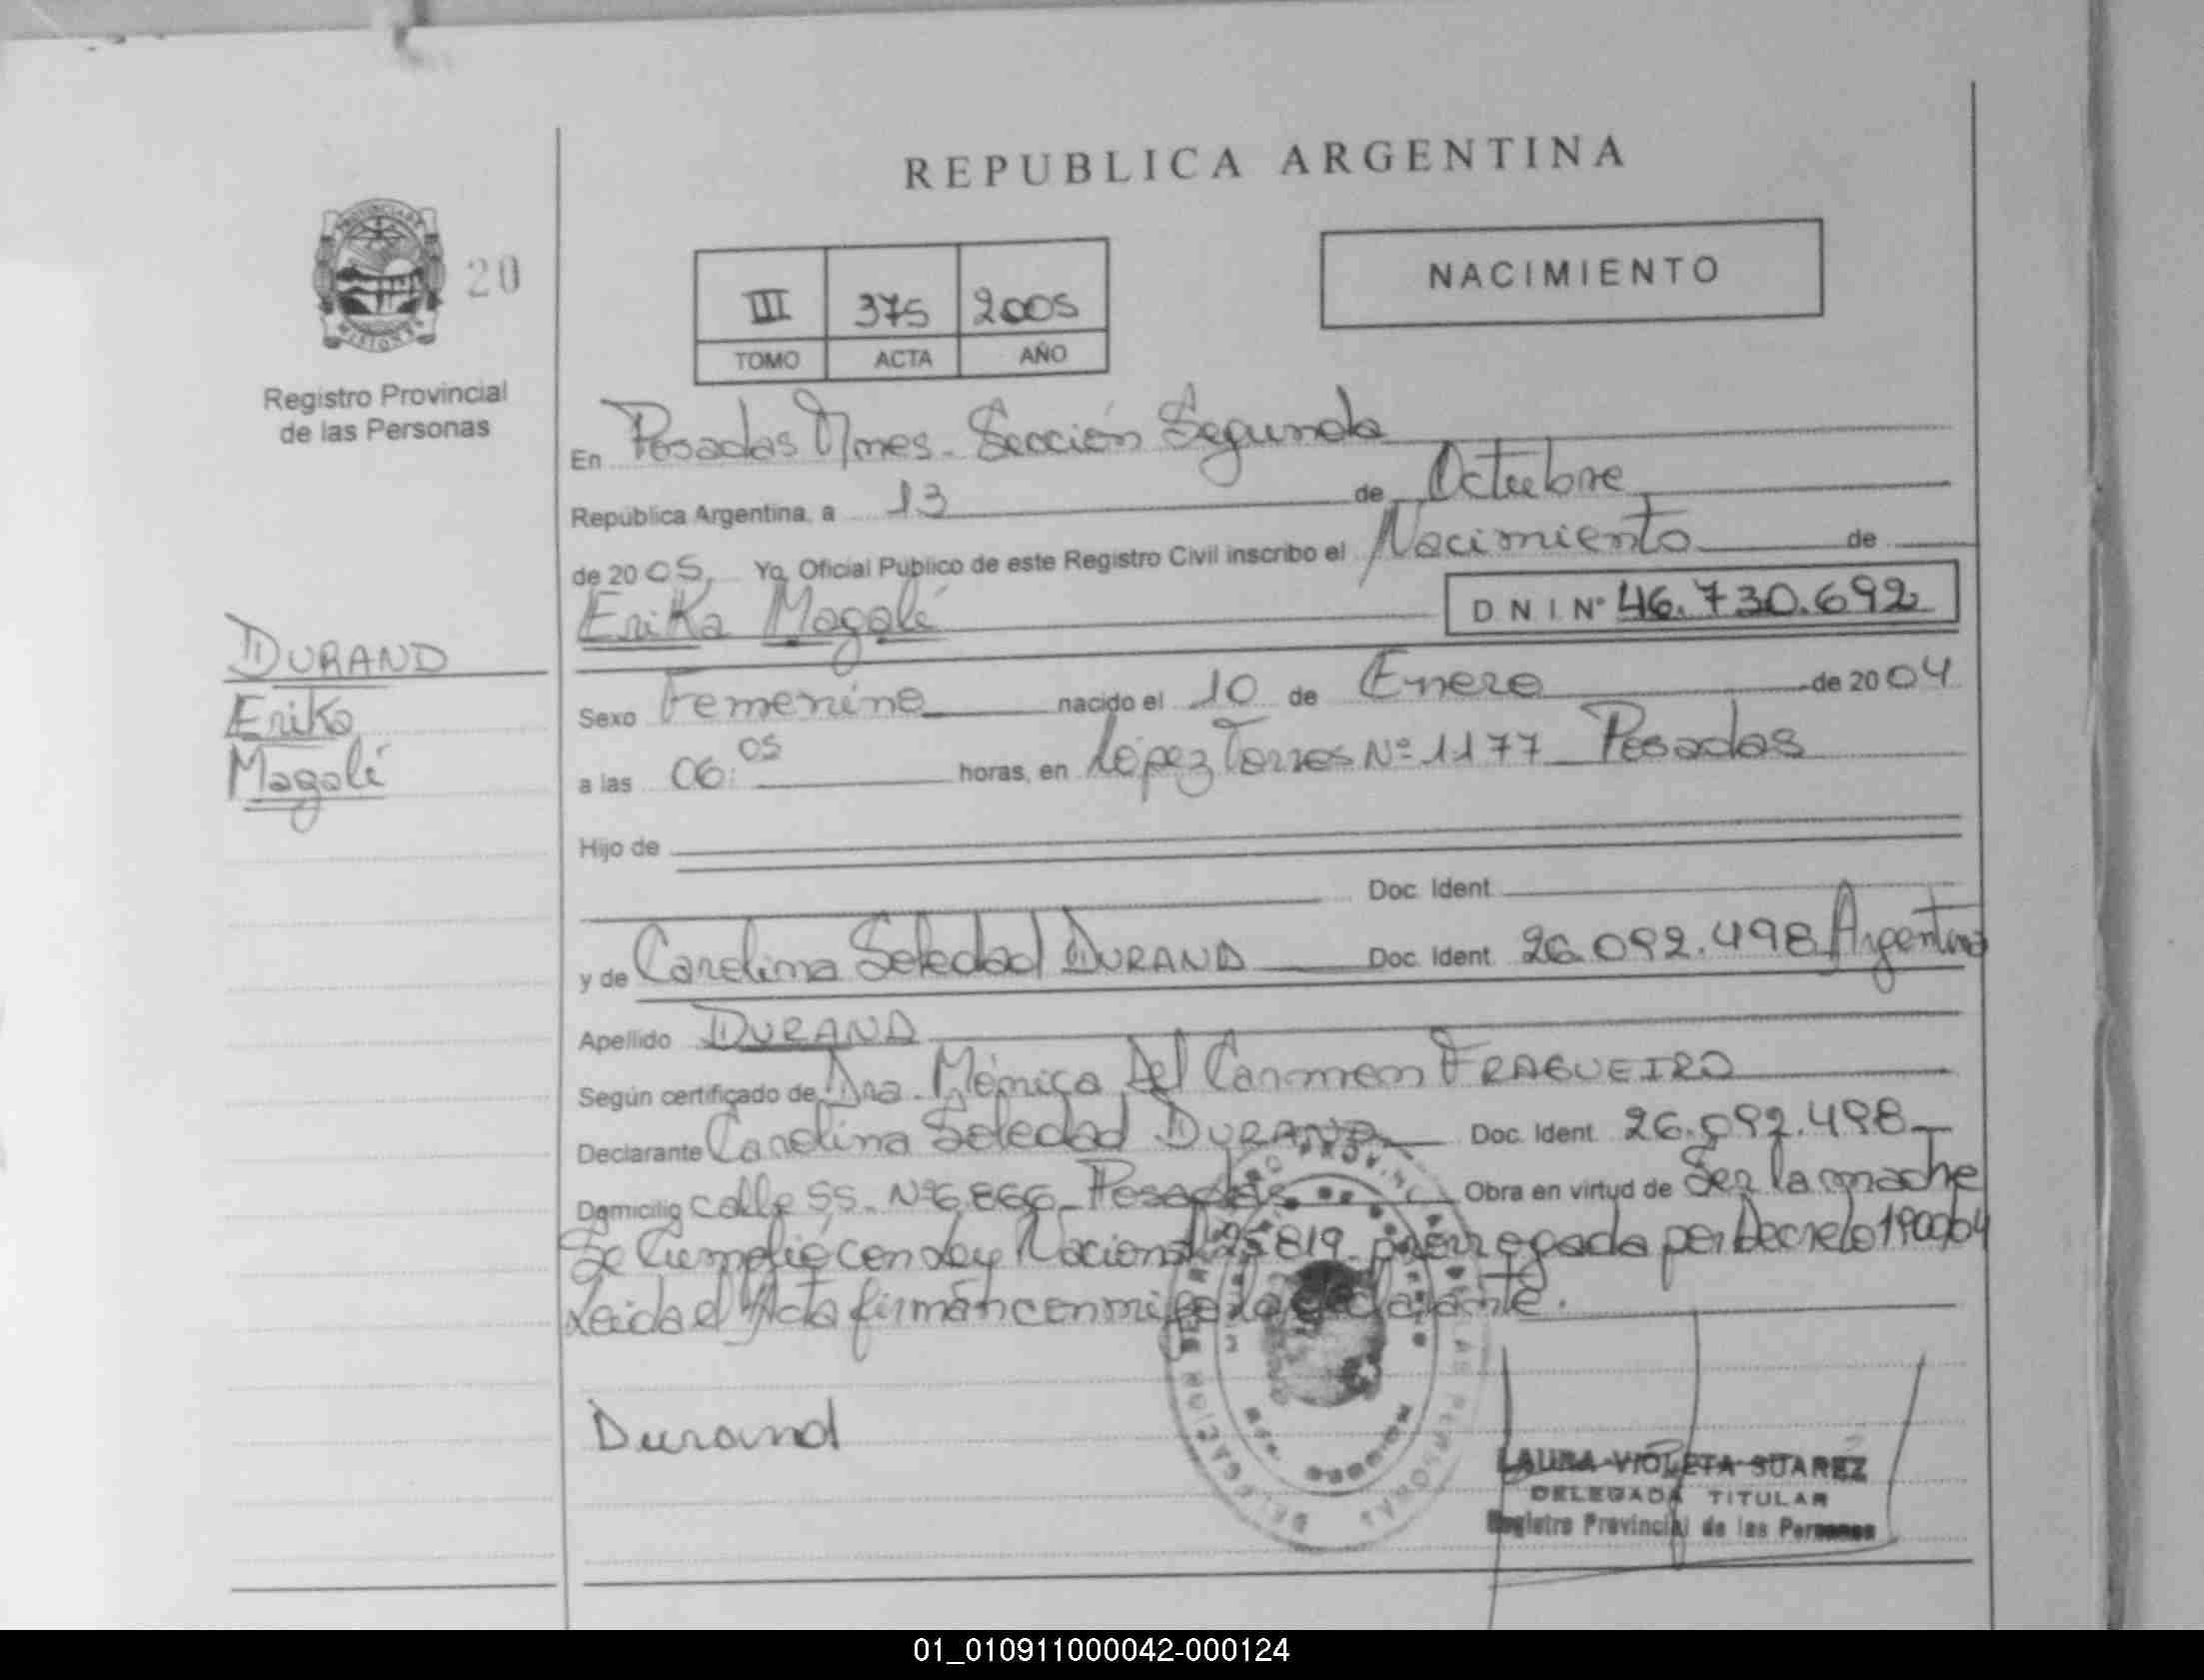 REPUBLICA ARGENTINA
20
NACIMIENTO
III 375 2005
TOMO ACTA AÑO
Registro Provincial
de las Personas
En Posadas Mnes. Sección Segunda
República Argentina, a 13 de Octubre
de 2005, Yo, Oficial Público de este Registro Civil inscribo el Nacimiento de
Erika Magalí
D N I Nº 46.730.692
DURAND
Erika
Magalí
Sexo Femenino nacido el 10 de Enero de 2004
a las 06:05 horas, en López Torres Nº 1177 Posadas
Hijo de
Doc. Ident.
y de Carolina Soledad DURAND Doc. Ident. 26.092.498 Argentina
Apellido DURAND
Según certificado de Dra. Mónica Del Carmen FRAGUEIRO
Declarante Carolina Soledad DURAND Doc. Ident. 26.092.498
Domicilio calle 55. Nº 6.866 Posadas Obra en virtud de Ser la madre
Se Cumplió con Ley Nacional 25.819 prorrogada por Decreto
Leida el Acta firman conmigo la declarante.
Durand
LAURA VIOLETA SUAREZ
DELEGADA TITULAR
Registro Provincial de las Personas
01_010911000042-000124